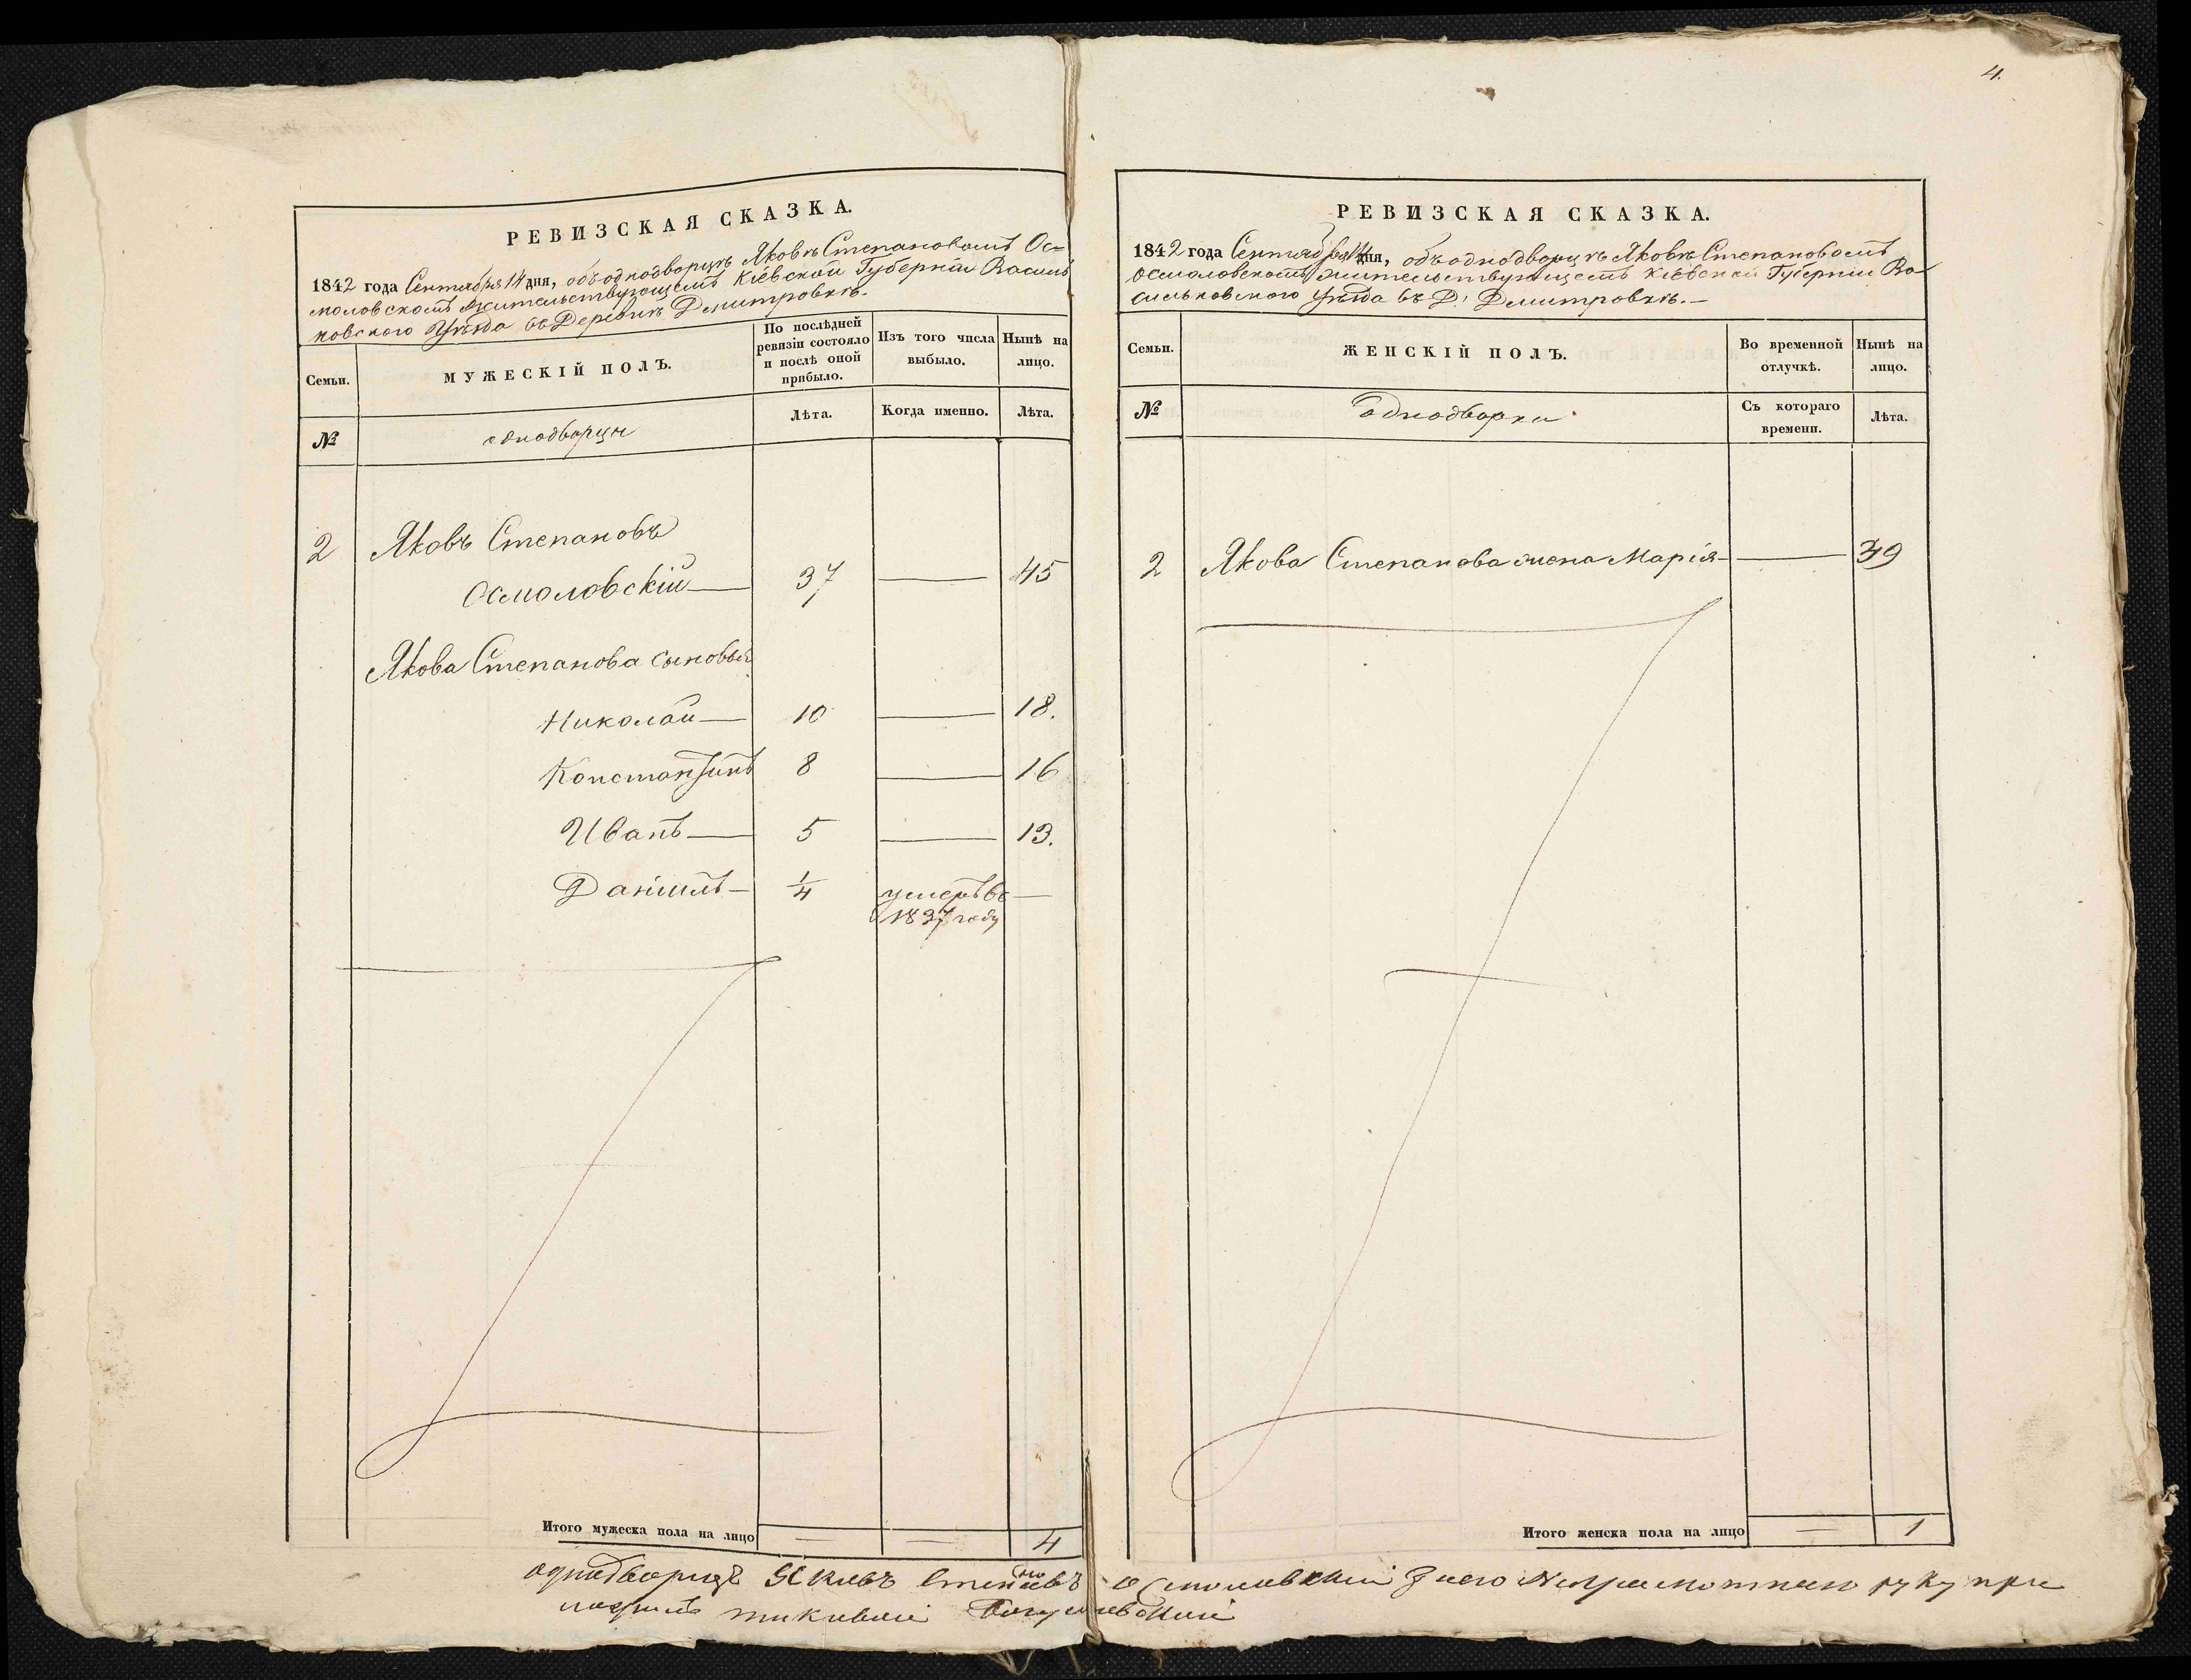 4.
РЕВИЗСКАЯ СКАЗКА.
1842 года Сентября 14 дня, объ однодворцѣ Яковѣ Степановомъ Ос=
моловскомъ жительствующемъ Кіевской Губерніи Василь
ковского Уѣзда въ Деревнѣ Дмитровкѣ.
Семьи.
МУЖЕСКІЙ ПОЛЪ.
По послѣдней
ревизіи состояло
и послѣ оной
прибыло.
Изъ того числа
выбыло.
Нынѣ на
лицо.
№
однодворцы
Лѣта.
Когда именно.
Лѣта.
2 Яковъ Степановъ
Осмоловскій — 37 — 45
Якова Степанова сыновья
Николай — 10 — 18.
Константинъ 8 — 16
Иванъ — 5 — 13.
Даніилъ — 1/4 умеръ въ —
1837 году
Итого мужеска пола на лицо — — 4
РЕВИЗСКАЯ СКАЗКА.
1842 года Сентября 14 дня, объ однодворцѣ Яковѣ Степановомъ
Осмоловскомъ жительствующемъ Кіевской Губерніи Ва
сильковского Уѣзда въ Д. Дмитровкѣ. —
Семьи.
ЖЕНСКІЙ ПОЛЪ.
Во временной
отлучкѣ.
Нынѣ на
лицо.
№
однодворки
Съ котораго
времени.
Лѣта.
2 Якова Степанова жена Марія — — 39
Итого женска пола на лицо — 1
однодворецъ Яковъ Степановъ Осмоловскій За него Неграмотнаго руку при
ложилъ